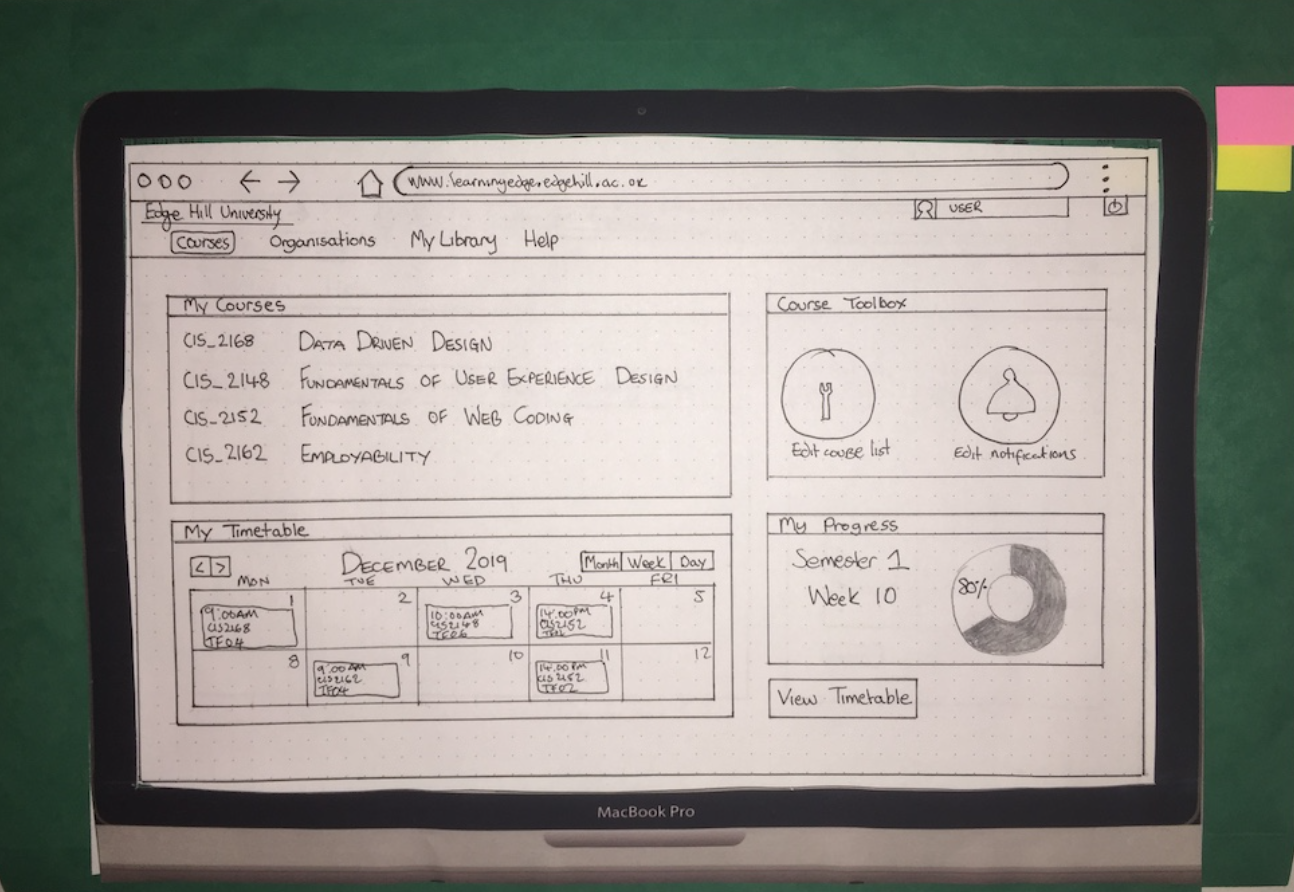 www.learningedge.edgehill.ac.ok
Edge Hill University
USER
Courses Organisations My Library Help
My Courses
CIS_2168 DATA DRIVEN DESIGN
CIS_2148 FUNDAMENTALS OF USER EXPERIENCE DESIGN
CIS_2152 FUNDAMENTALS OF WEB CODING
CIS_2162 EMPLOYABILITY
Course Toolbox
Edit course list
Edit notifications
My Timetable
< >
DECEMBER 2019
Month Week Day
MON TUE WED THU FRI
1 2 3 4 5
9:00AM
CIS2168
TF04
10:00AM
CIS2148
TF06
14:00PM
CIS2152
8 9 10 11 12
9:00AM
CIS2162
TF04
14:00PM
CIS2152
TF02
My Progress
Semester 1
Week 10
80%
View Timetable
MacBook Pro